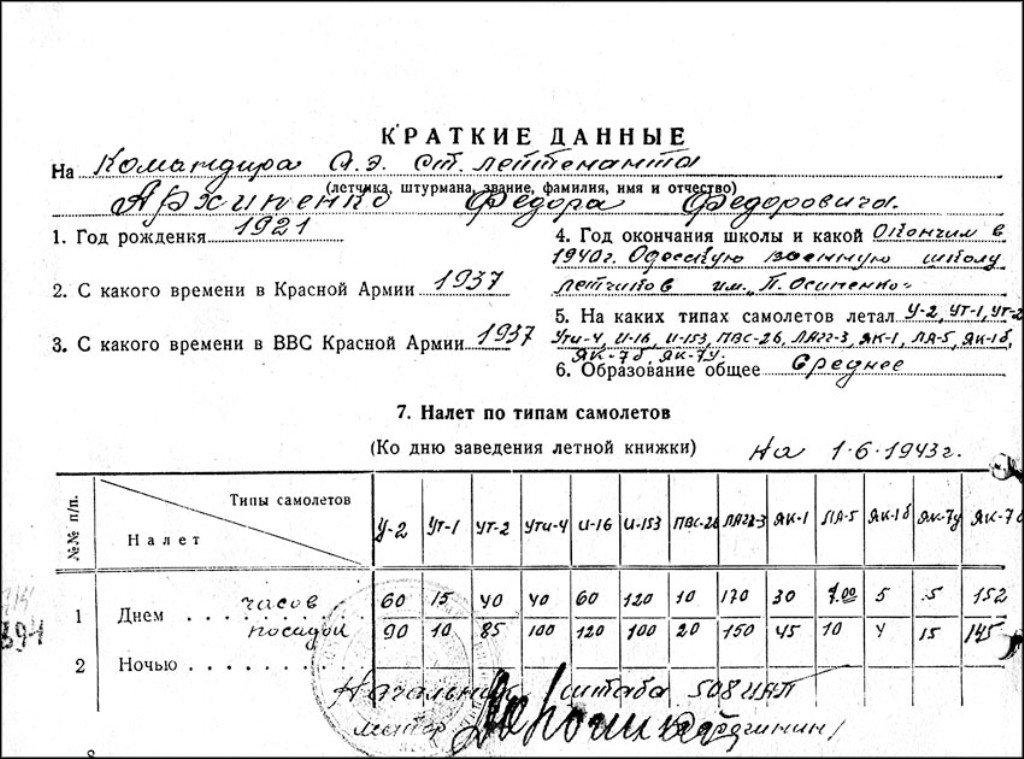 КРАТКИЕ ДАННЫЕ
На Командира А.Э. ст. лейтенанта
(летчика, штурмана, звание, фамилия, имя и отчество)
Архипенко Федора Федоровича.
1. Год рождения 1921
2. С какого времени в Красной Армии 1937
3. С какого времени в ВВС Красной Армии 1937
4. Год окончания школы и какой Окончил в
1940г. Одесскую военную школу
летчиков им. "П. Осипенко"
5. На каких типах самолетов летал У-2, УТ-1, УТ-2
Ути-4, И-16, И-153, ПВС-26, ЛАГГ-3, ЯК-1, ЛА-5, ЯК-1б,
ЯК-7б, ЯК-7У.
6. Образование общее Среднее
7. Налет по типам самолетов
(Ко дню заведения летной книжки) на 1.6.1943г.
№№ п/п. Типы самолетов Налет У-2 УТ-1 УТ-2 Ути-4 И-16 И-153 ПВС-26 ЛАГГ-3 ЯК-1 ЛА-5 ЯК-1б ЯК-7у ЯК-7б
1 Днем часов 60 15 40 40 60 120 10 170 30 1.00 5 5 152
посадок 90 10 85 100 120 100 20 150 45 10 4 15 145
2 Ночью
Начальник штаба 508 ИАП
майор